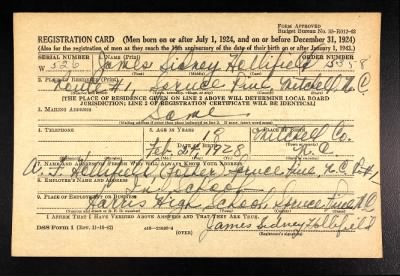 FORM APPROVED
Budget Bureau No. 33-R012-42
REGISTRATION CARD (Men born on or after July 1, 1924, and on or before December 31, 1924)
(Also for the registration of men as they reach the 18th anniversary of the date of their birth on or after January 1, 1943.)
SERIAL NUMBER 1. NAME (Print) ORDER NUMBER
James Sidney Hollifield
(First) (Middle) (Last)
2. PLACE OF RESIDENCE (Print)
Spruce Pine Mitchell N.C.
[THE PLACE OF RESIDENCE GIVEN ON LINE 2 ABOVE WILL DETERMINE LOCAL BOARD
JURISDICTION; LINE 2 OF REGISTRATION CERTIFICATE WILL BE IDENTICAL]
3. MAILING ADDRESS
Same
4. TELEPHONE 5. AGE IN YEARS 6. PLACE OF BIRTH
18 Mitchell Co.
DATE OF BIRTH
N.C.
7. NAME AND ADDRESS OF PERSON WHO WILL ALWAYS KNOW YOUR ADDRESS
Hollifield (Father) Spruce Pine, N.C.
8. EMPLOYER'S NAME AND ADDRESS
In School
9. PLACE OF EMPLOYMENT OR BUSINESS
Harris High School, Spruce Pine N.C.
I AFFIRM THAT I HAVE VERIFIED ABOVE ANSWERS AND THAT THEY ARE TRUE.
DSS Form 1 James Sidney Hollifield
(Registrant's signature)